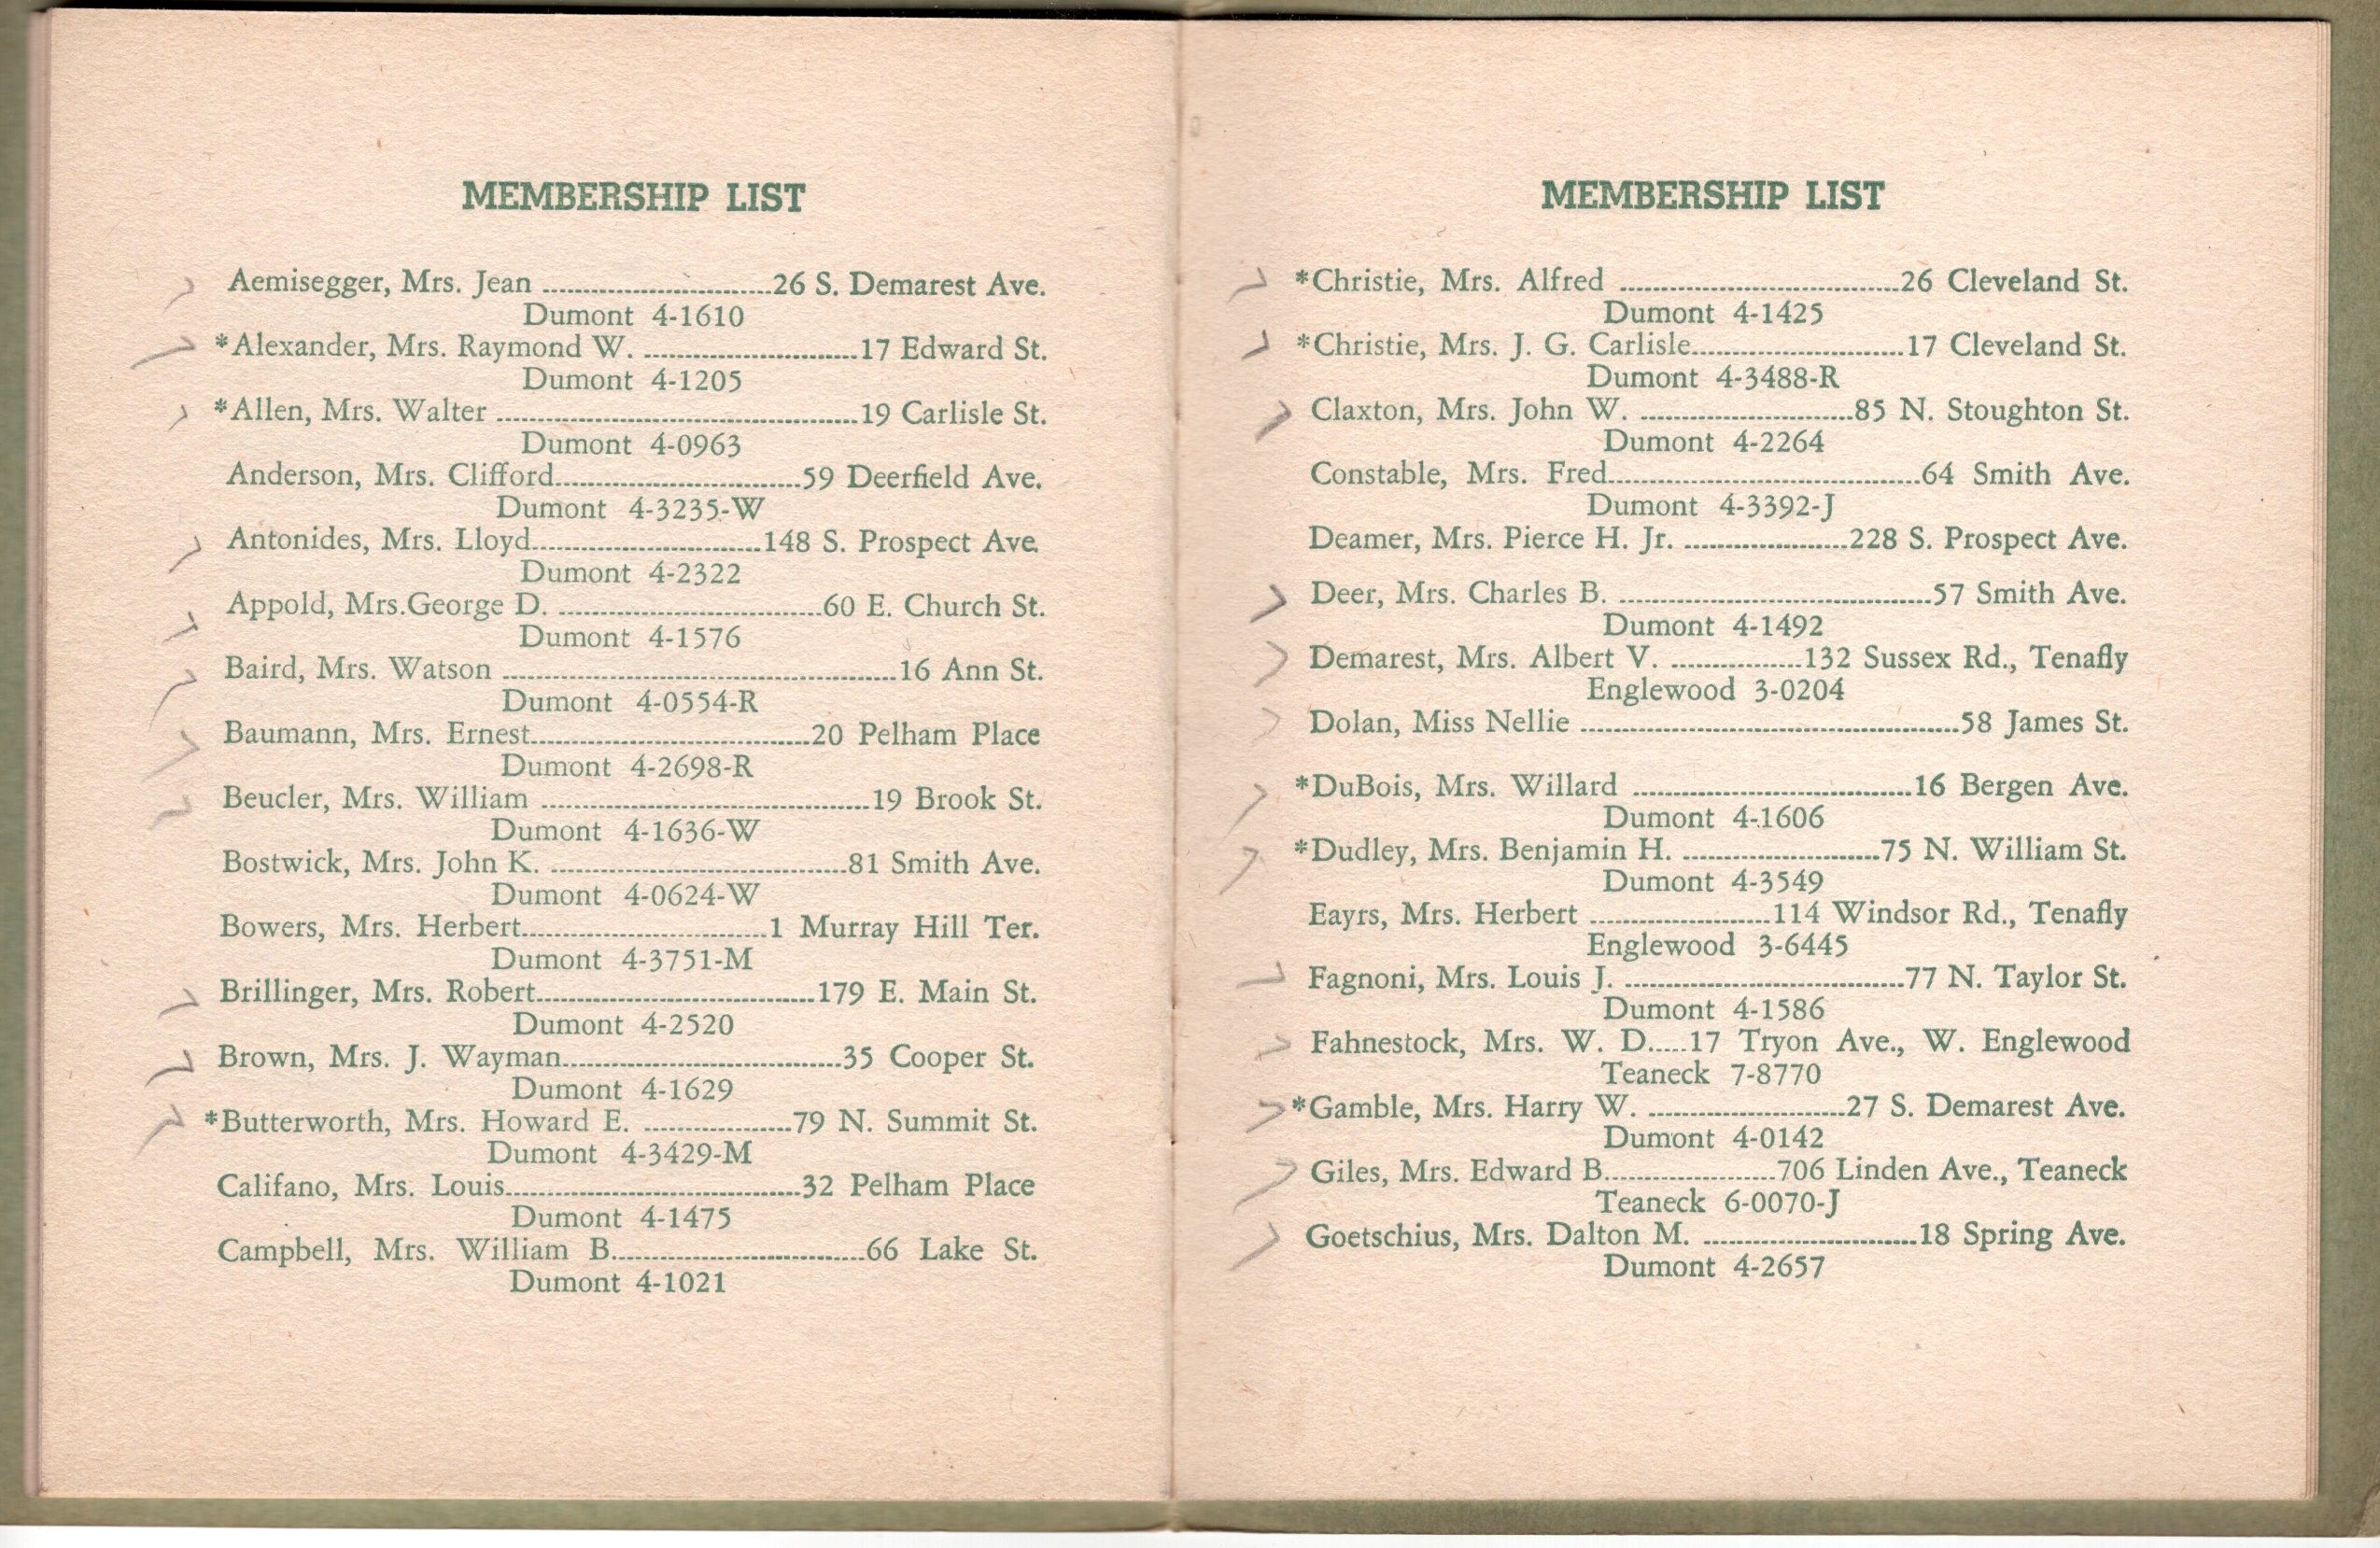 MEMBERSHIP LIST
Aemisegger, Mrs. Jean ............................26 S. Demarest Ave.
Dumont 4-1610
*Alexander, Mrs. Raymond W. ..........................17 Edward St.
Dumont 4-1205
*Allen, Mrs. Walter ............................................19 Carlisle St.
Dumont 4-0963
Anderson, Mrs. Clifford..............................59 Deerfield Ave.
Dumont 4-3235-W
Antonides, Mrs. Lloyd............................148 S. Prospect Ave.
Dumont 4-2322
Appold, Mrs.George D. ................................60 E. Church St.
Dumont 4-1576
Baird, Mrs. Watson ................................................16 Ann St.
Dumont 4-0554-R
Baumann, Mrs. Ernest..................................20 Pelham Place
Dumont 4-2698-R
Beucler, Mrs. William ........................................19 Brook St.
Dumont 4-1636-W
Bostwick, Mrs. John K. ....................................81 Smith Ave.
Dumont 4-0624-W
Bowers, Mrs. Herbert..............................1 Murray Hill Ter.
Dumont 4-3751-M
Brillinger, Mrs. Robert..................................179 E. Main St.
Dumont 4-2520
Brown, Mrs. J. Wayman..................................35 Cooper St.
Dumont 4-1629
*Butterworth, Mrs. Howard E. ..................79 N. Summit St.
Dumont 4-3429-M
Califano, Mrs. Louis....................................32 Pelham Place
Dumont 4-1475
Campbell, Mrs. William B...............................66 Lake St.
Dumont 4-1021
MEMBERSHIP LIST
*Christie, Mrs. Alfred ..................................26 Cleveland St.
Dumont 4-1425
*Christie, Mrs. J. G. Carlisle..........................17 Cleveland St.
Dumont 4-3488-R
Claxton, Mrs. John W. ..........................85 N. Stoughton St.
Dumont 4-2264
Constable, Mrs. Fred......................................64 Smith Ave.
Dumont 4-3392-J
Deamer, Mrs. Pierce H. Jr. ....................228 S. Prospect Ave.
Deer, Mrs. Charles B. ......................................57 Smith Ave.
Dumont 4-1492
Demarest, Mrs. Albert V. ................132 Sussex Rd., Tenafly
Englewood 3-0204
Dolan, Miss Nellie ..............................................58 James St.
*DuBois, Mrs. Willard ..................................16 Bergen Ave.
Dumont 4-1606
*Dudley, Mrs. Benjamin H. ........................75 N. William St.
Dumont 4-3549
Eayrs, Mrs. Herbert ......................114 Windsor Rd., Tenafly
Englewood 3-6445
Fagnoni, Mrs. Louis J. ..................................77 N. Taylor St.
Dumont 4-1586
Fahnestock, Mrs. W. D.....17 Tryon Ave., W. Englewood
Teaneck 7-8770
*Gamble, Mrs. Harry W. ........................27 S. Demarest Ave.
Dumont 4-0142
Giles, Mrs. Edward B.....................706 Linden Ave., Teaneck
Teaneck 6-0070-J
Goetschius, Mrs. Dalton M. ..........................18 Spring Ave.
Dumont 4-2657